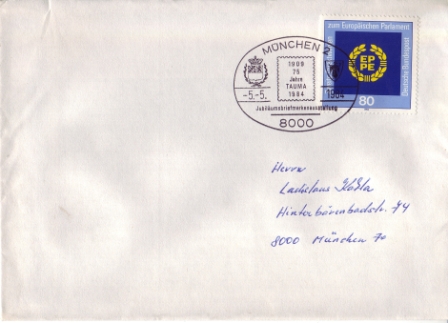 zum Europäischen Parlament
Deutsche Bundespost
EP
PE
80
MÜNCHEN 2
1909
75
Jahre
TAUMA
1984
-5.-5. 1984
Jubiläumsbriefmarkenausstellung
8000
Herrn
Ladislaus
Hinterbärenbadstr. 74
8000 München 70